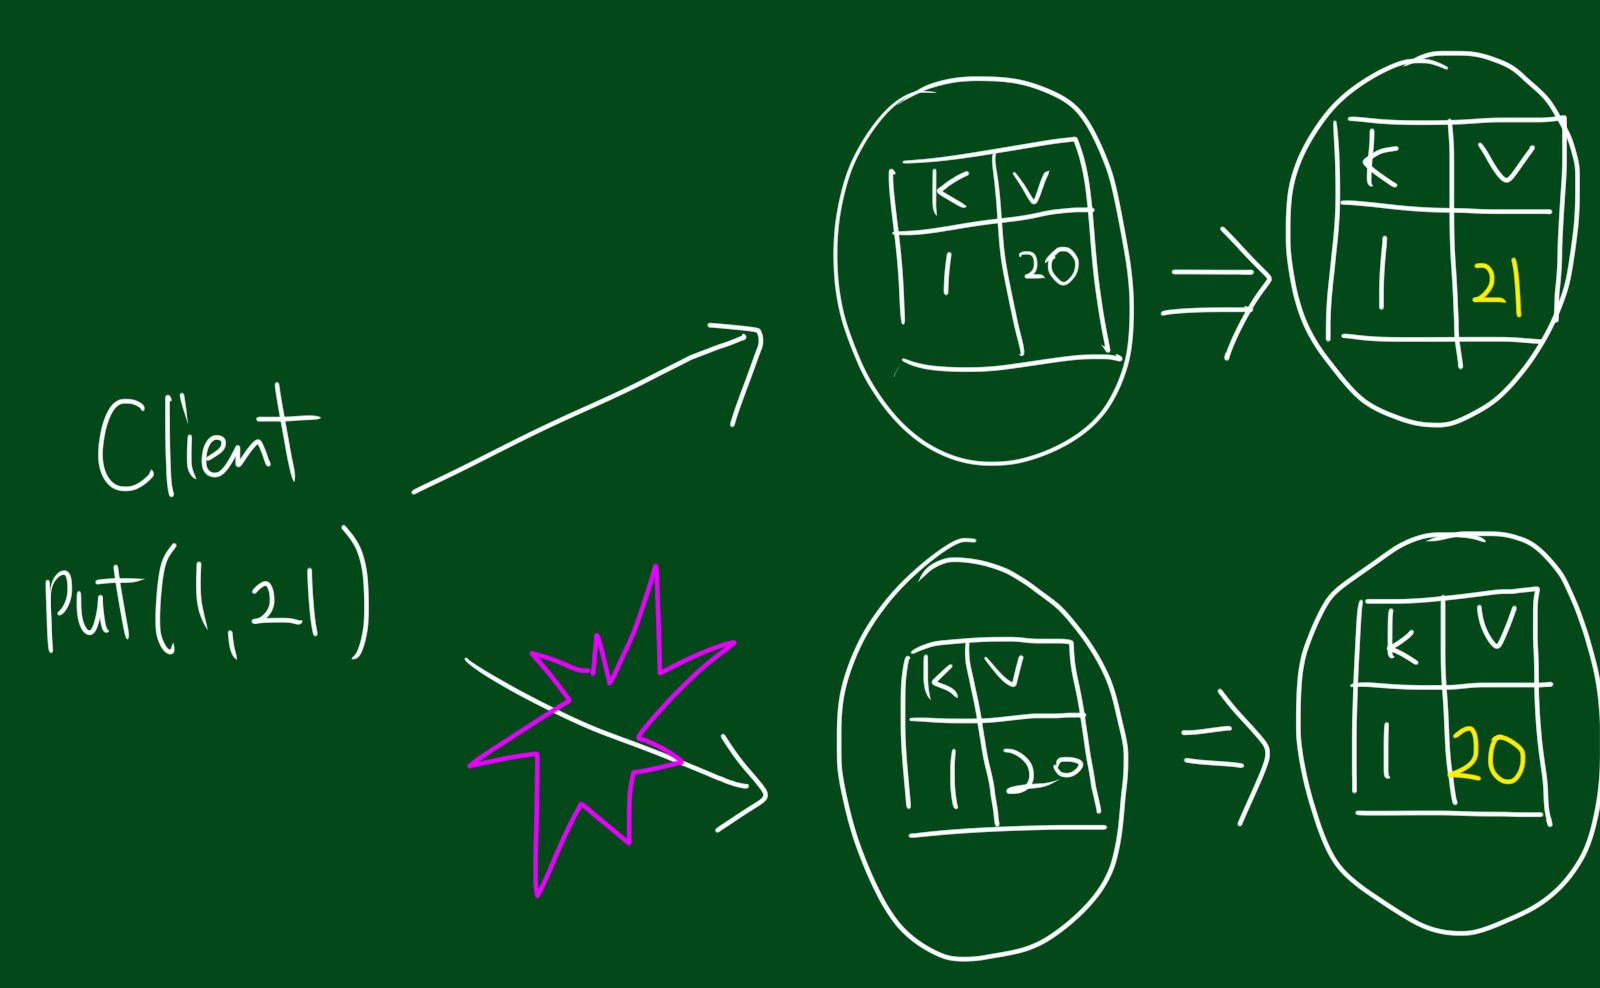 Client
Put(1,21)
K V
1 20
K V
1 21
K V
1 20
K V
1 20